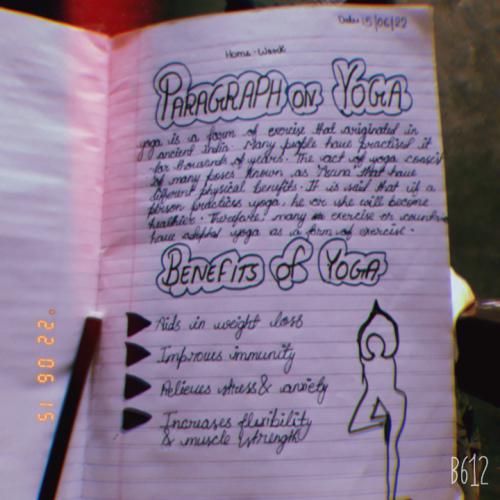 Date 15/06/22
Home-Work
PARAGRAPH ON YOGA
yoga is a form of exercise that originated in
ancient India. Many people have practised it
for thousands of years. The act of yoga consist
of many poses known as "Asana" that have
different physical benefits. It is said that if a
person practices yoga, he or she will become
healthier. Therefore, many exercise or countries
have adopted yoga as a form of exercise.
BENEFITS of YOGA
Aids in weight loss
Improves immunity
Relieves stress & anxiety
Increases flexibility
& muscle strength
15 06 22.
B612